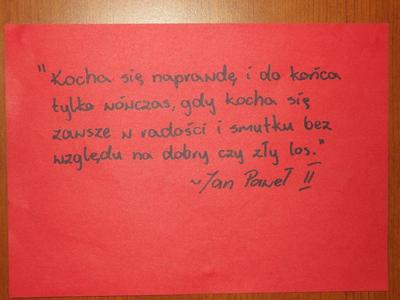 "Kocha się naprawdę i do końca
tylko wówczas, gdy kocha się
zawsze w radości i smutku bez
względu na dobry czy zły los."
~Jan Paweł II